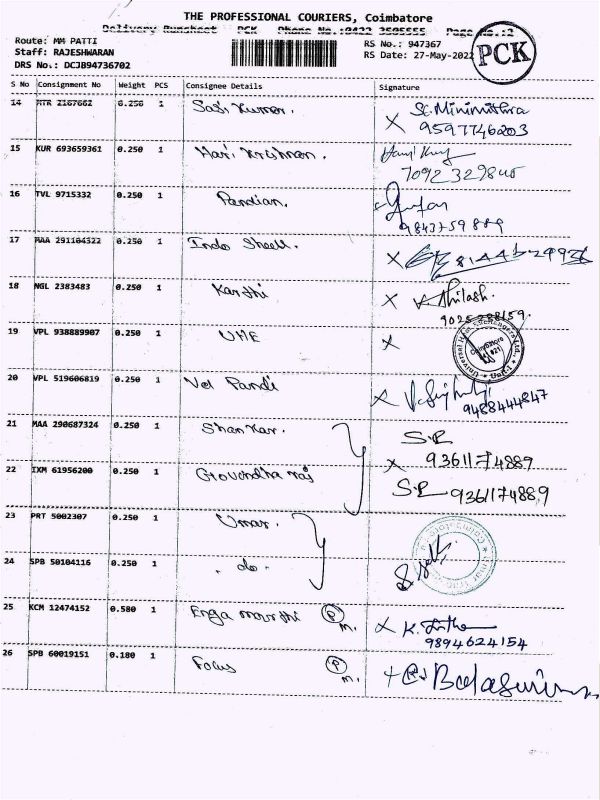 THE PROFESSIONAL COURIERS, Coimbatore
Delivery Runsheet PCK Phone No.:0422 3505555 Page No.:2
Route: MM PATTI
RS No.: 947367
Staff: RAJESHWARAN
RS Date: 27-May-2022
PCK
DRS No.: DCJ894736702
S No Consignment No Weight PCS Consignee Details Signature
14 MTR 2167662 0.250 1 Sasi Kumar.
X
9597746203
15 KUR 693659361 0.250 1 Hari Krishnan.
16 TVL 9715332 0.250 1 Pandian.
9843759889
17 MAA 291104322 0.250 1 Indo Shell. X
18 NGL 2383483 0.250 1 Karthi X
19 VPL 938889907 0.250 1 UHE X
20 VPL 519606819 0.250 1 Vel Pandi X
9488444847
21 MAA 290687324 0.250 1 Shankar. S.R
9361174889
22 IXM 61956200 0.250 1 Govindha raj X
S.R 9361174889
23 PRT 5002307 0.250 1 Umar.
24 SPB 50104116 0.250 1 - do -
25 KCM 12474152 0.580 1 P M. X
9894624154
26 SPB 60019151 0.180 1 Focus P M.